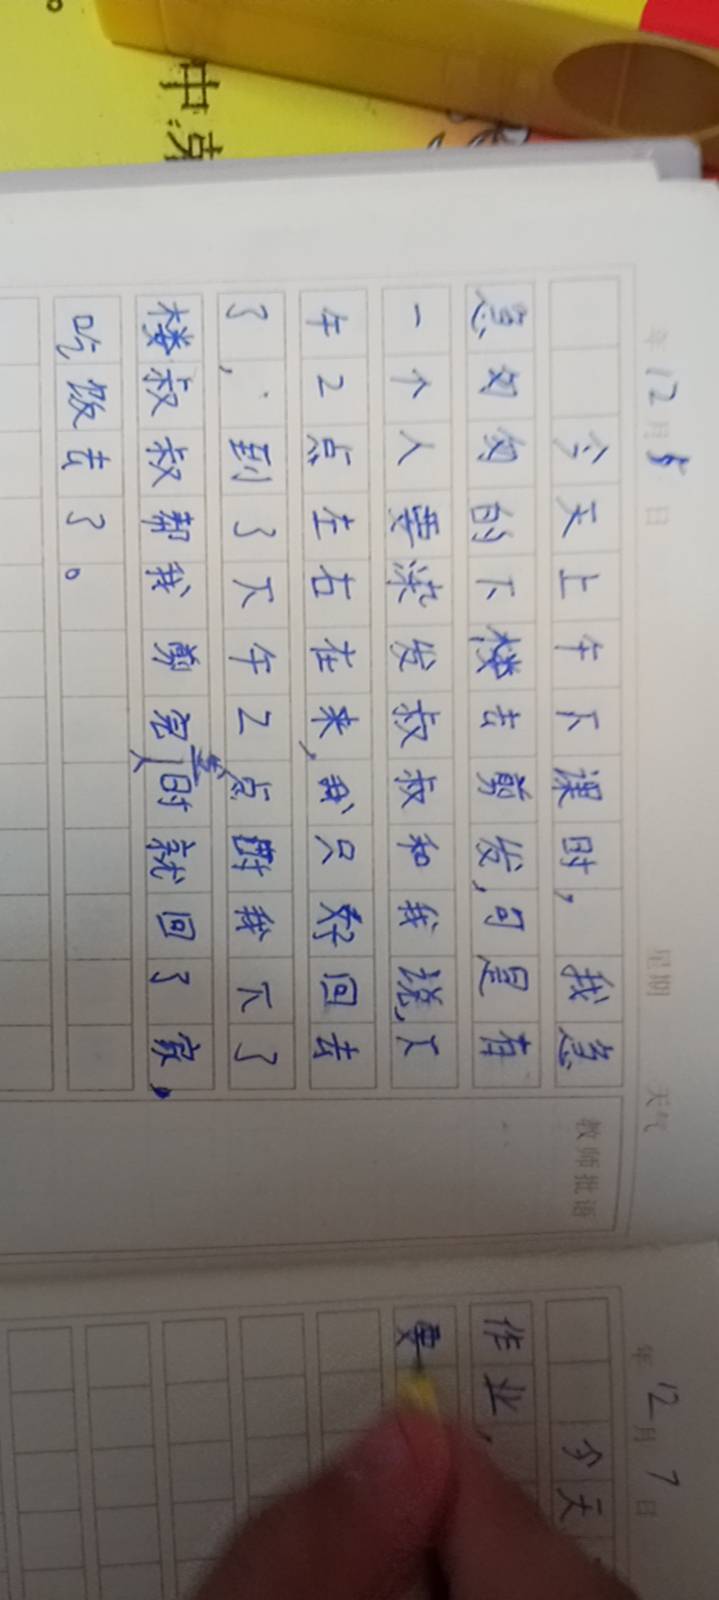 中东
年12月8日 星期 天气
今天上午下课时,我急
急匆匆的下楼去剪发,可是有
一个人要染发叔叔和我说,下
午2点左右在来,我只好回去
了,到了下午2点时我下了
楼叔叔帮我剪完时就回了家,
吃饭去了。
教师批语
年12月7日
今天
作业,
要